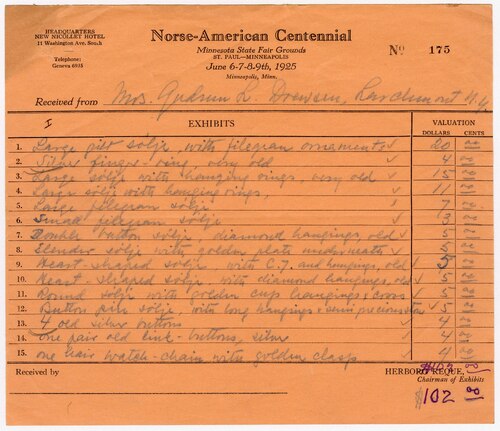 HEADQUARTERS
NEW NICOLLET HOTEL
11 Washington Ave. South
Telephone:
Geneva 6935
Norse-American Centennial
Minnesota State Fair Grounds
ST. PAUL—MINNEAPOLIS
June 6-7-8-9th, 1925
Minneapolis, Minn.
No 175
Received from Mrs. Gudrun L. Drewsen, Larchmont N.Y.
I EXHIBITS VALUATION
DOLLARS CENTS
1. Large gilt sölje, with filegran ornaments ✓ 20
2. Silver finger-ring, very old ✓ 4
3. Large sölje with hanging rings, very old ✓ 15
4. Large sölje with hanging rings, ✓ 11
5. Large filegran sölje 7
6. Small filegran sölje ✓ 3
7. Double button sölje, diamond hangings, old ✓ 5
8. Slender sölje with golden plate underneath ✓ 5
9. Heart-shaped sölje, with C.7. and hangings, old 5
10. Heart-shaped sölje, with diamond hangings, old ✓ 5
11. Round sölje with golden cup hangings & cross ✓ 5
12. Button pin sölje, with long hangings & ✓ 5
13. 4 old silver buttons ✓ 4
14. one pair old link-buttons, silver ✓ 4
15. one hair watch-chain with golden clasp ✓ 4
Received by HERBORG REQUE,
Chairman of Exhibits
$102